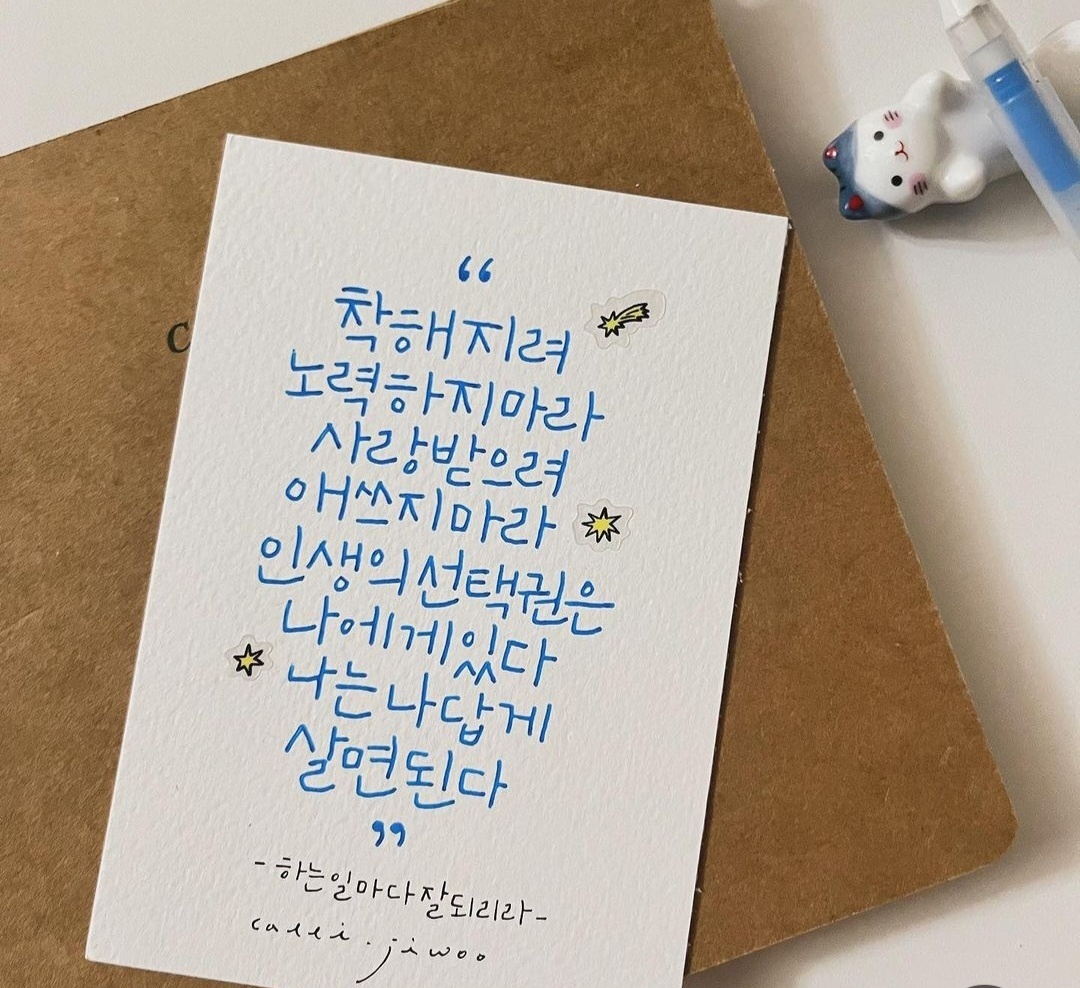 “
착해지려
노력하지마라
사랑받으려
애쓰지마라
인생의선택권은
나에게있다
나는나답게
살면된다
”
-하는일마다잘되리라-
calli.jiwoo
C